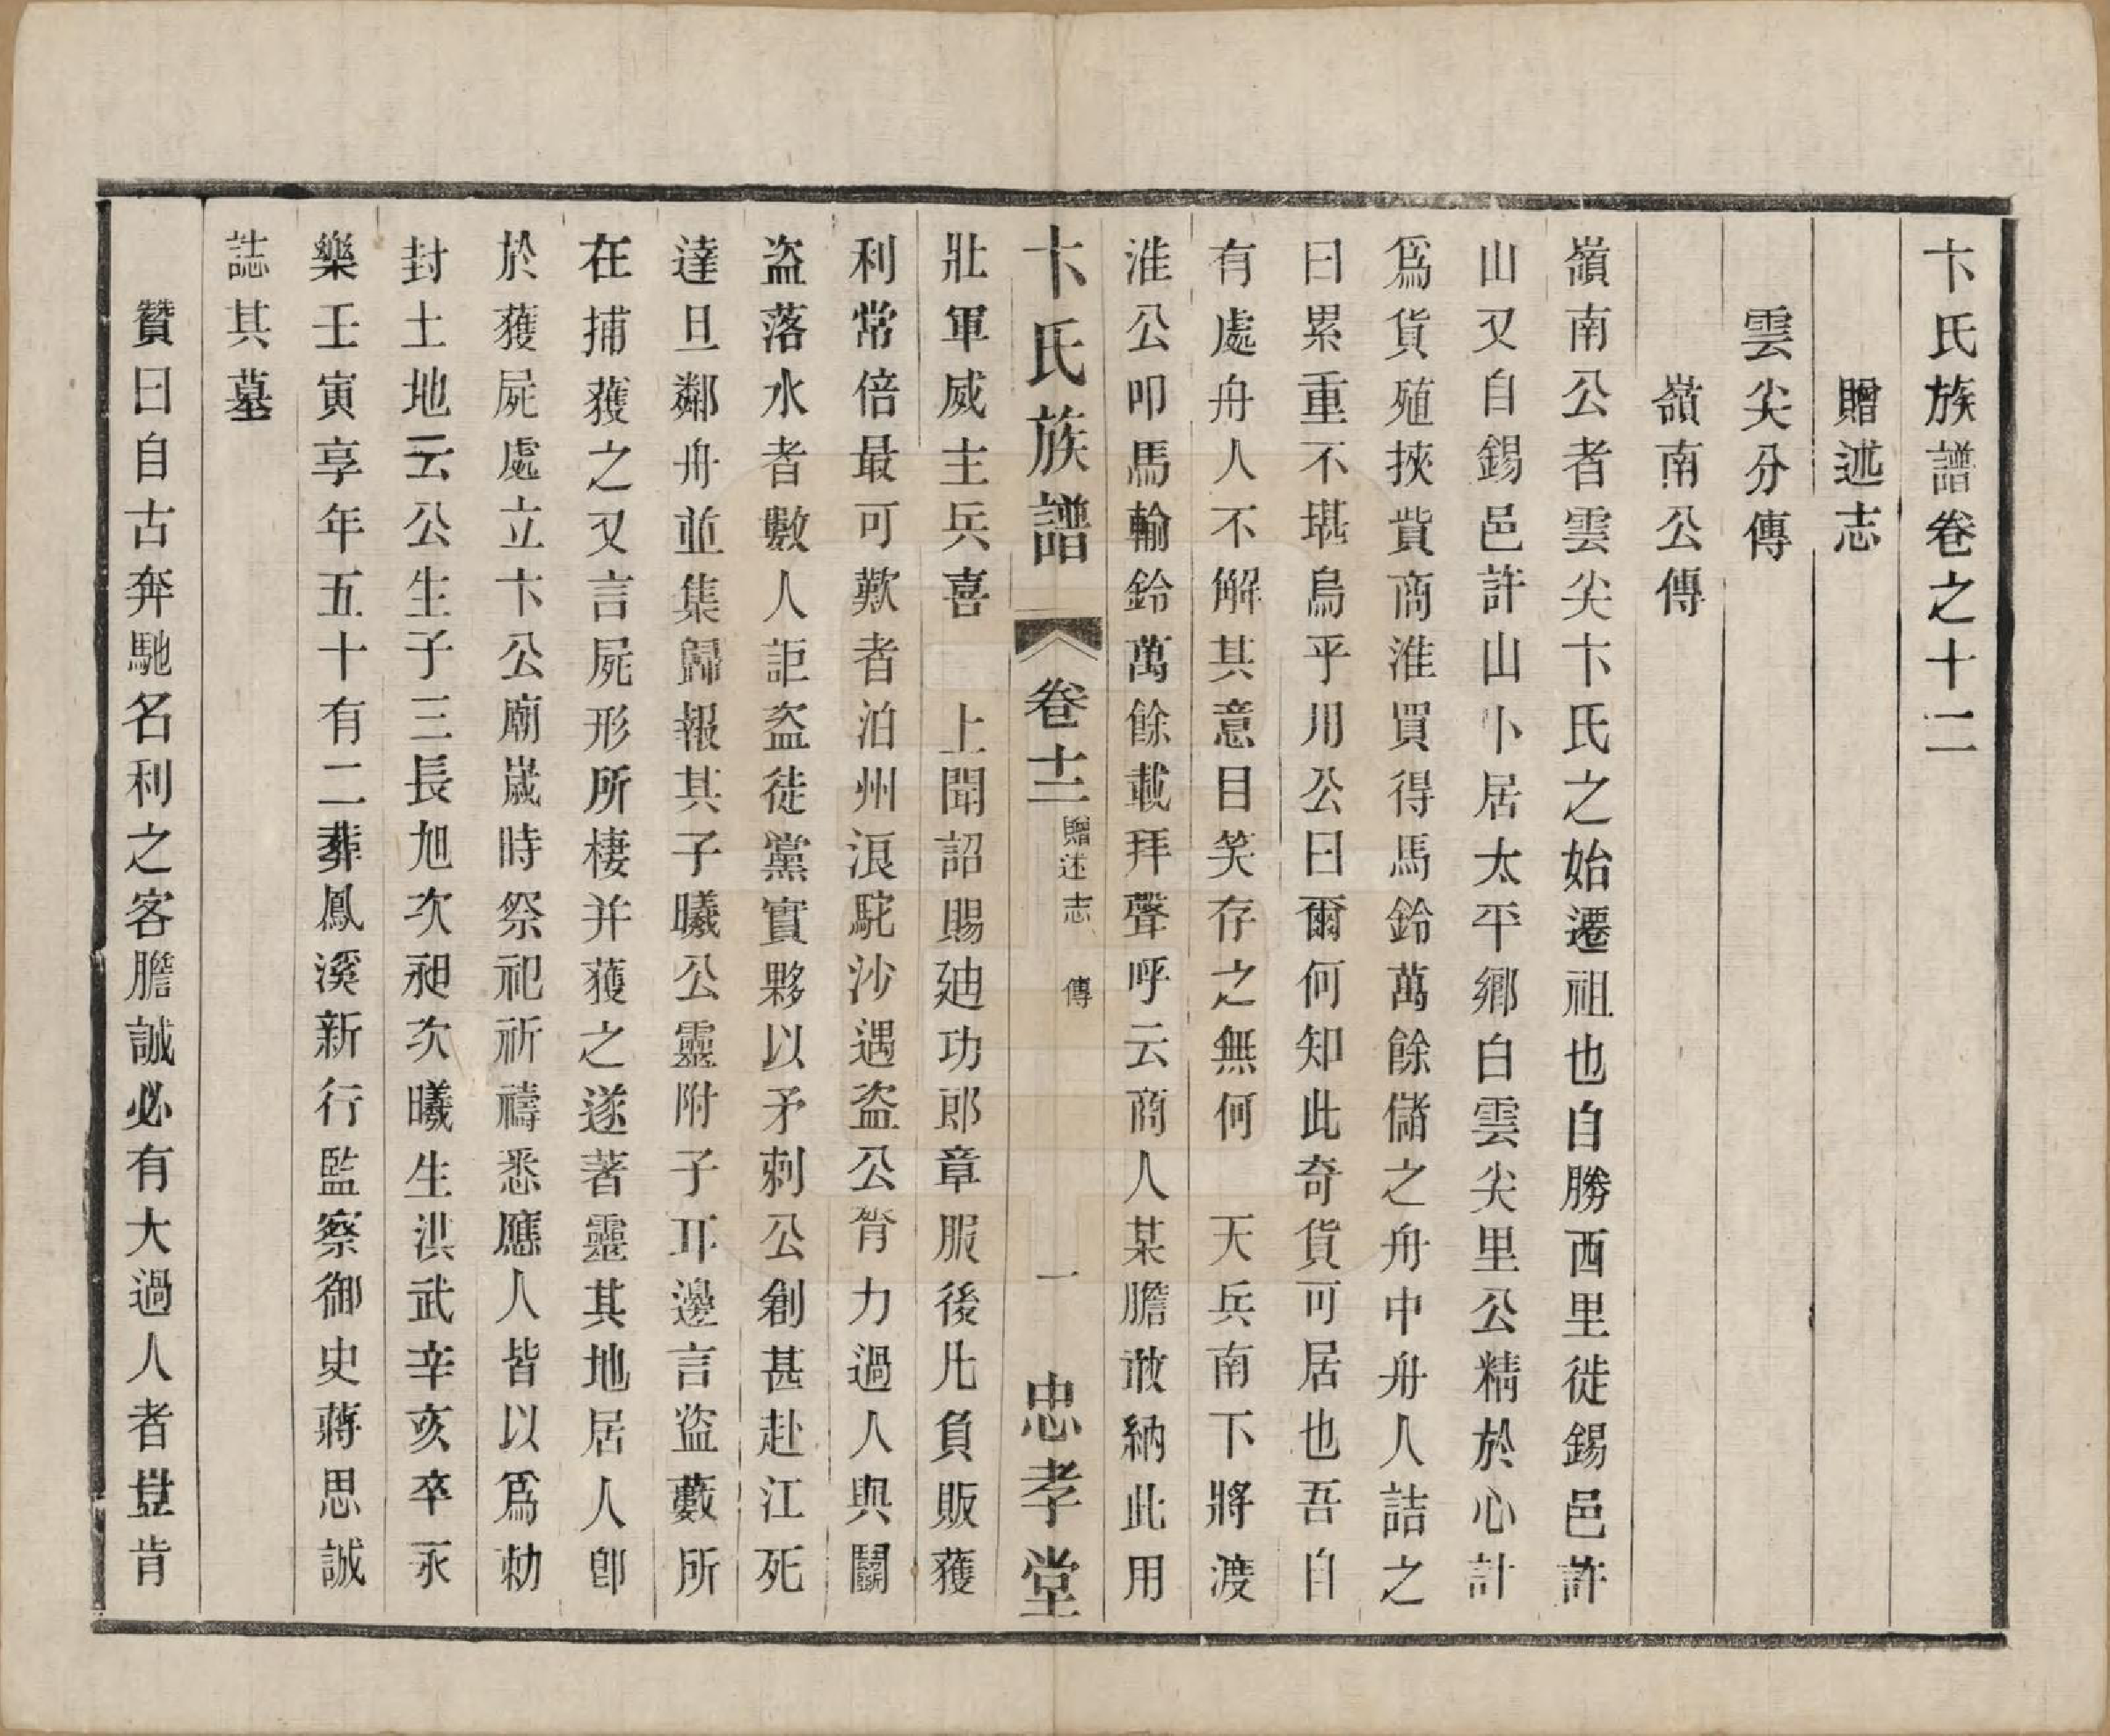 卞氏族譜卷之十二
贈述志
雲尖分傳
嶺南公傳
嶺南公者雲尖卞氏之始遷祖也自勝西里徙錫邑許
山又自錫邑許山卜居太平鄉白雲尖里公精於心計
爲貨殖挾貲商淮買得馬鈴萬餘儲之舟中舟人詰之
曰累重不堪烏乎用公曰爾何知此奇貨可居也吾自
有處舟人不解其意目笑存之無何　天兵南下將渡
淮公叩馬輸鈴萬餘載拜聲呼云商人某膽敢納此用
壯軍威主兵喜　上聞詔賜廸功郎章服後凡負販獲
利常倍最可歎者泊州浪駝沙遇盜公膂力過人與鬬
盜落水者數人詎盜徒黨實夥以矛刺公創甚赴江死
達旦鄰舟並集歸報其子曦公靈附子耳邊言盜藪所
在捕獲之又言屍形所棲并獲之遂著靈其地居人卽
於獲屍處立卞公廟歲時祭祀祈禱悉應人皆以爲勑
封土地云公生子三長旭次昶次曦生洪武辛亥卒永
樂壬寅享年五十有二葬鳳溪新行監察御史蔣思誠
誌其墓
贊曰自古奔馳名利之客膽誠必有大過人者豈肯
卞氏族譜　卷十二　贈述志　傳　一　忠孝堂